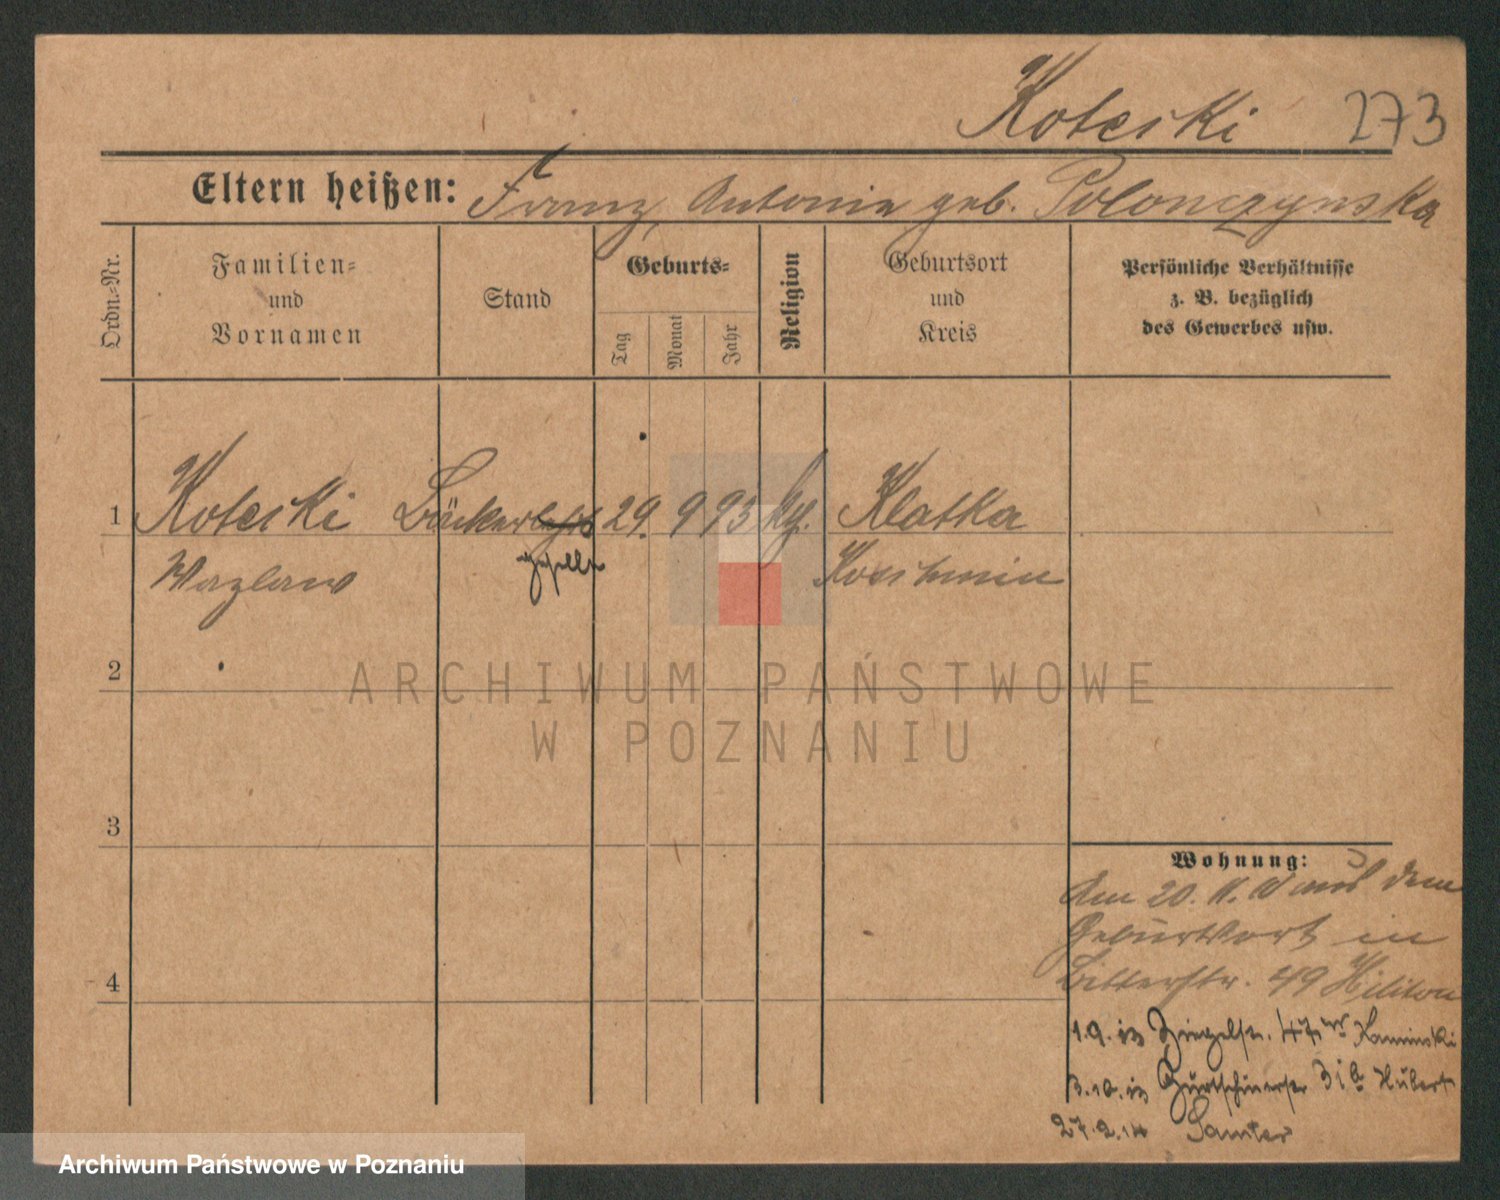 Koteski 273
Eltern heißen: Franz, Antonie geb. Polonczynska
Ordn.-Nr.
Familien-
und
Vornamen
Stand
Geburts-
Tag
Monat
Jahr
Religion
Geburtsort
und
Kreis
Persönliche Verhältnisse
z. B. bezüglich
des Gewerbes usw.
1 Koteski Bäcker 29. 9 93 kth. Klatka
Wazlaw geselle Koschmin
2
3
4
Wohnung:
Am 20. aus dem
Geburtsort in
Bitterstr. 49
1.9. 13 Ziegelstr. 47 Kaminski
3.10. 13 Hubert
27.2.14 Samter
ARCHIWUM PAŃSTWOWE
W POZNANIU
Archiwum Państwowe w Poznaniu